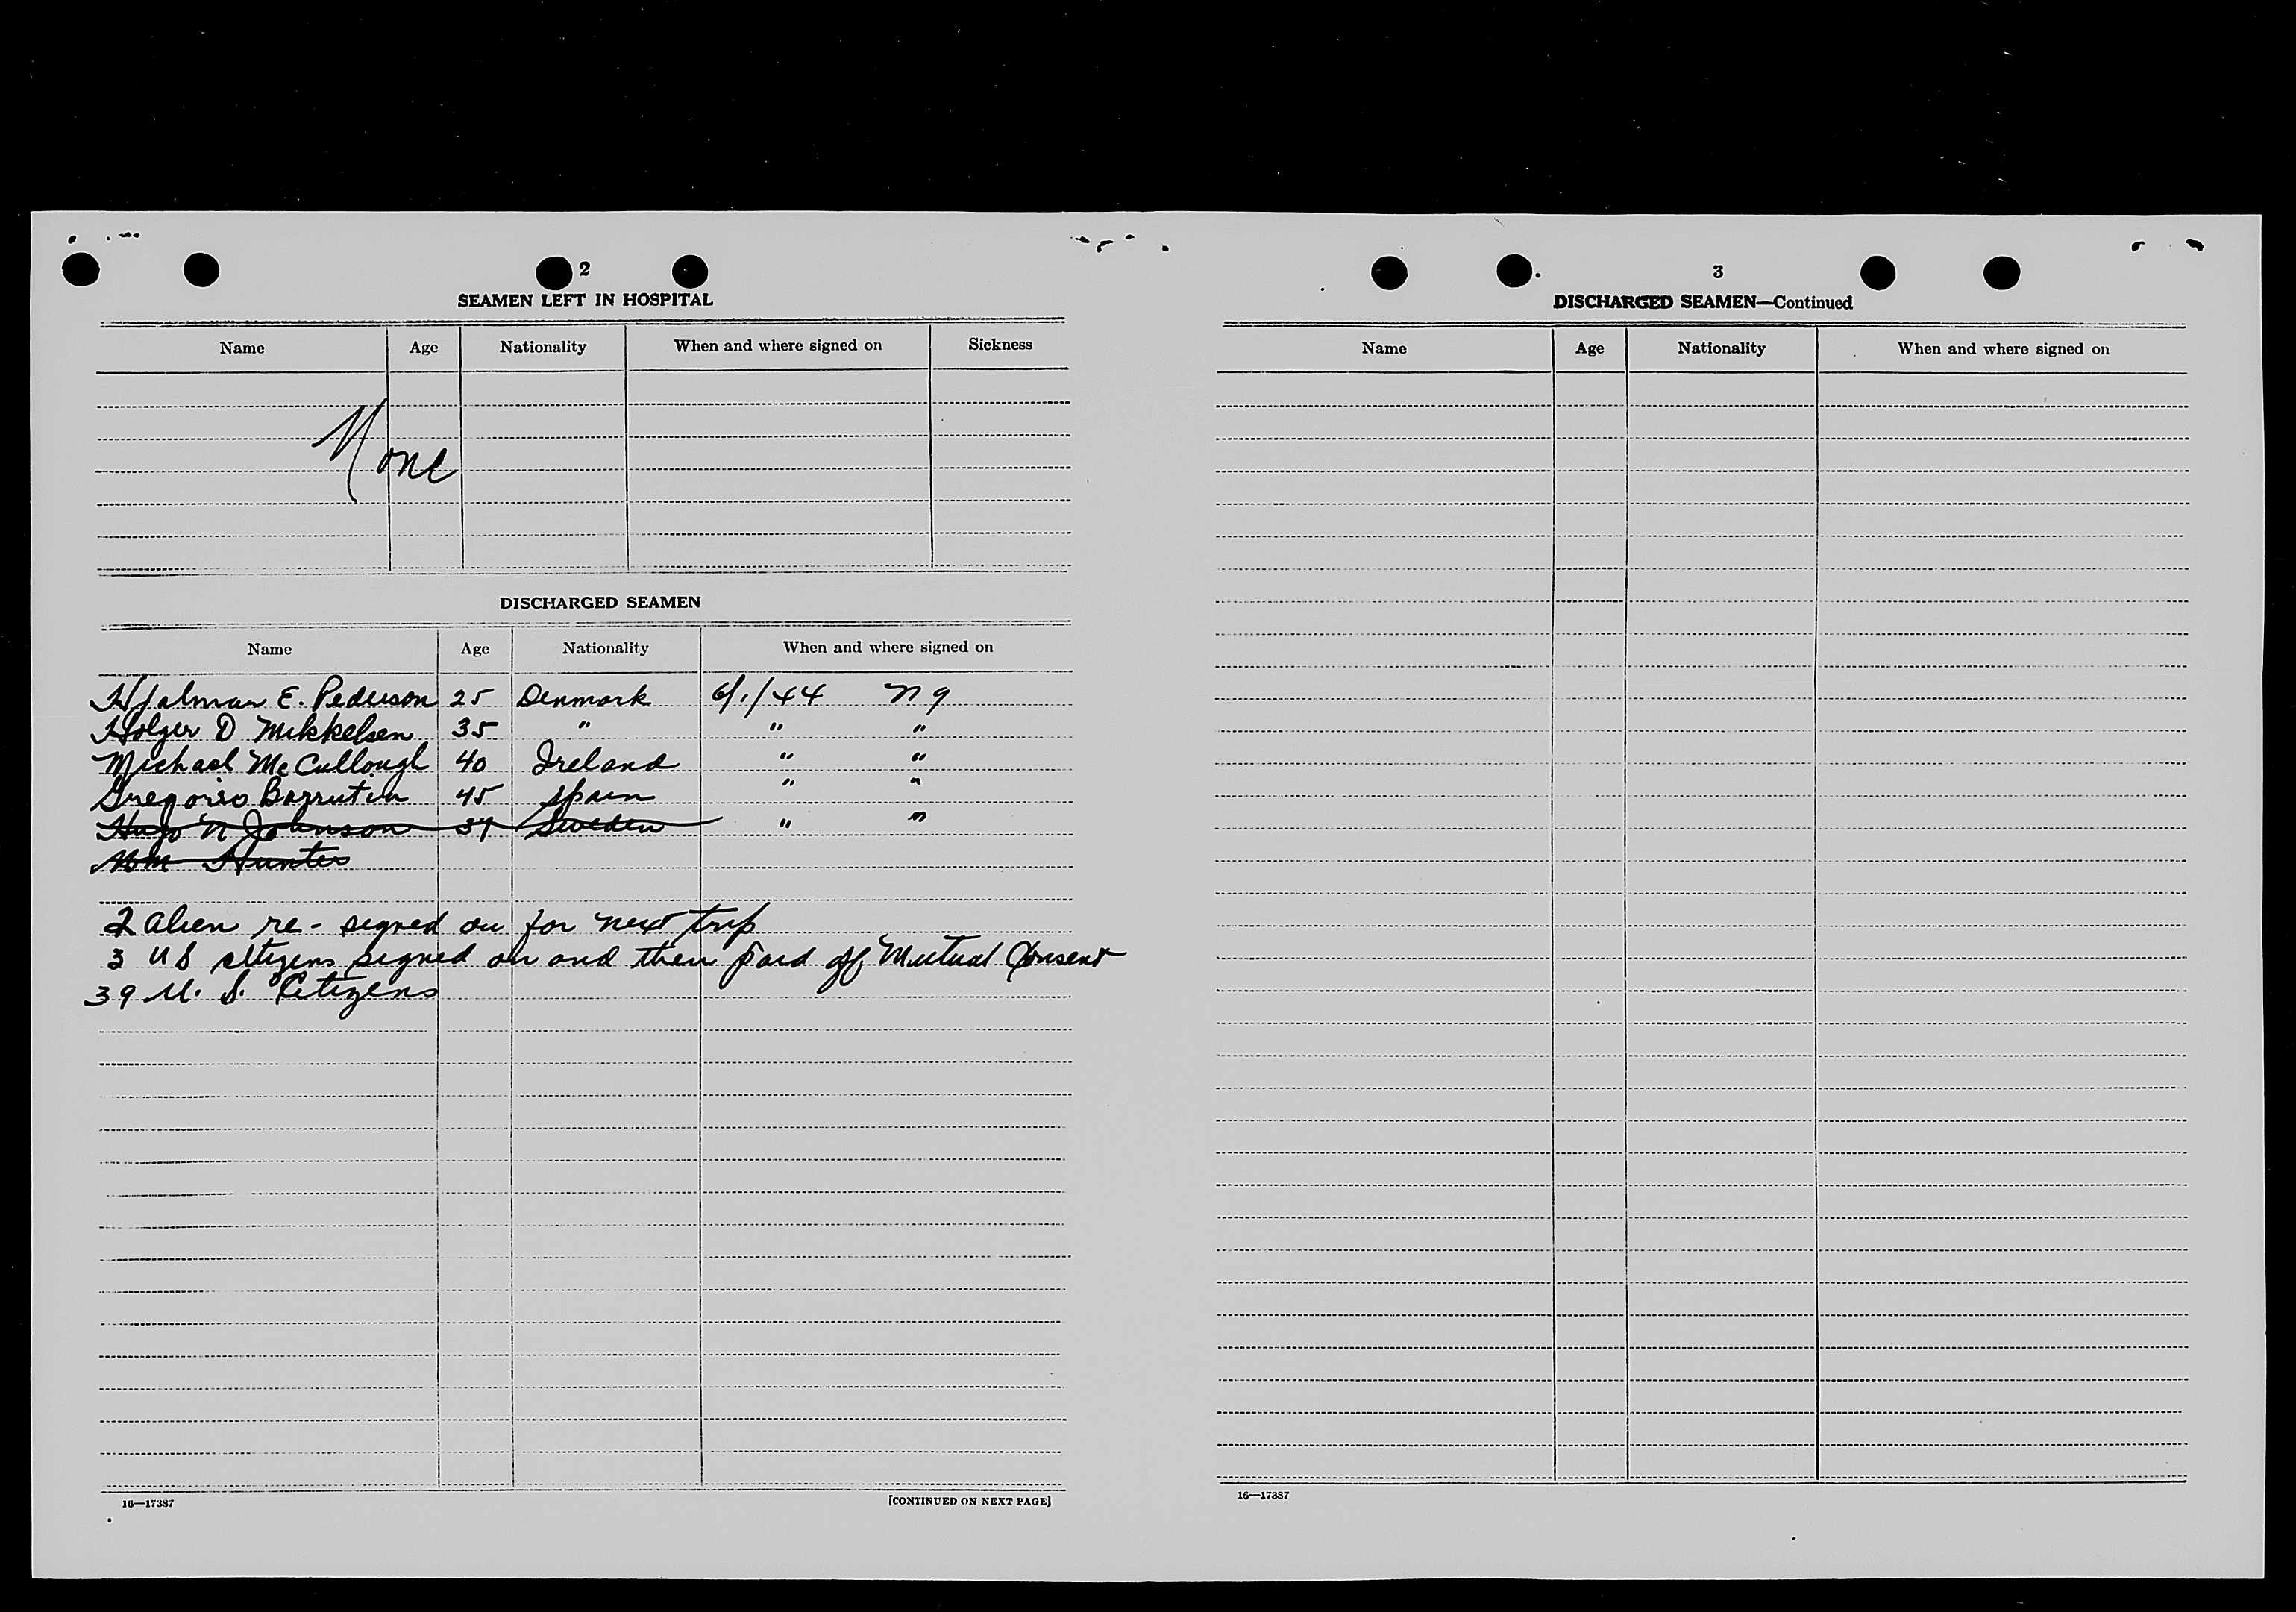 2
SEAMEN LEFT IN HOSPITAL
Name Age Nationality When and where signed on Sickness
None
DISCHARGED SEAMEN
Name Age Nationality When and where signed on
Hjalmar E. Pederson 25 Denmark 6/1/44 NY
Holger D Mikkelsen 35 " " "
Michael McCullough 40 Ireland " "
Gregorio Barrutia 45 Spain " "
Hugo N Johnson 37 Sweden " "
Wm Hunter
2 alien re-signed on for next trip
3 US citizens signed on and then paid off Mutual Consent
39 U. S. Citizens
16—17387 [CONTINUED ON NEXT PAGE]
3
DISCHARGED SEAMEN—Continued
Name Age Nationality When and where signed on
16—17387